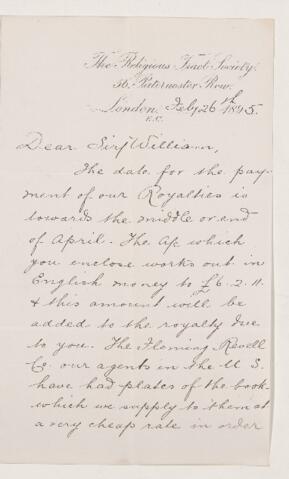 The Religious Tract Society.
56, Paternoster Row,
London, Feby 26th 1895.
E.C.
Dear Sir William,
The date for the pay-
ment of our Royalties is
towards the middle or end
of April. The A/c which
you enclose works out in
English money to £6.2.11.
& this amount will be
added to the royalty due
to you. The Fleming Revell
Co. our agents in the U S.
have had plates of the book
which we supply to them at
a very cheap rate in order